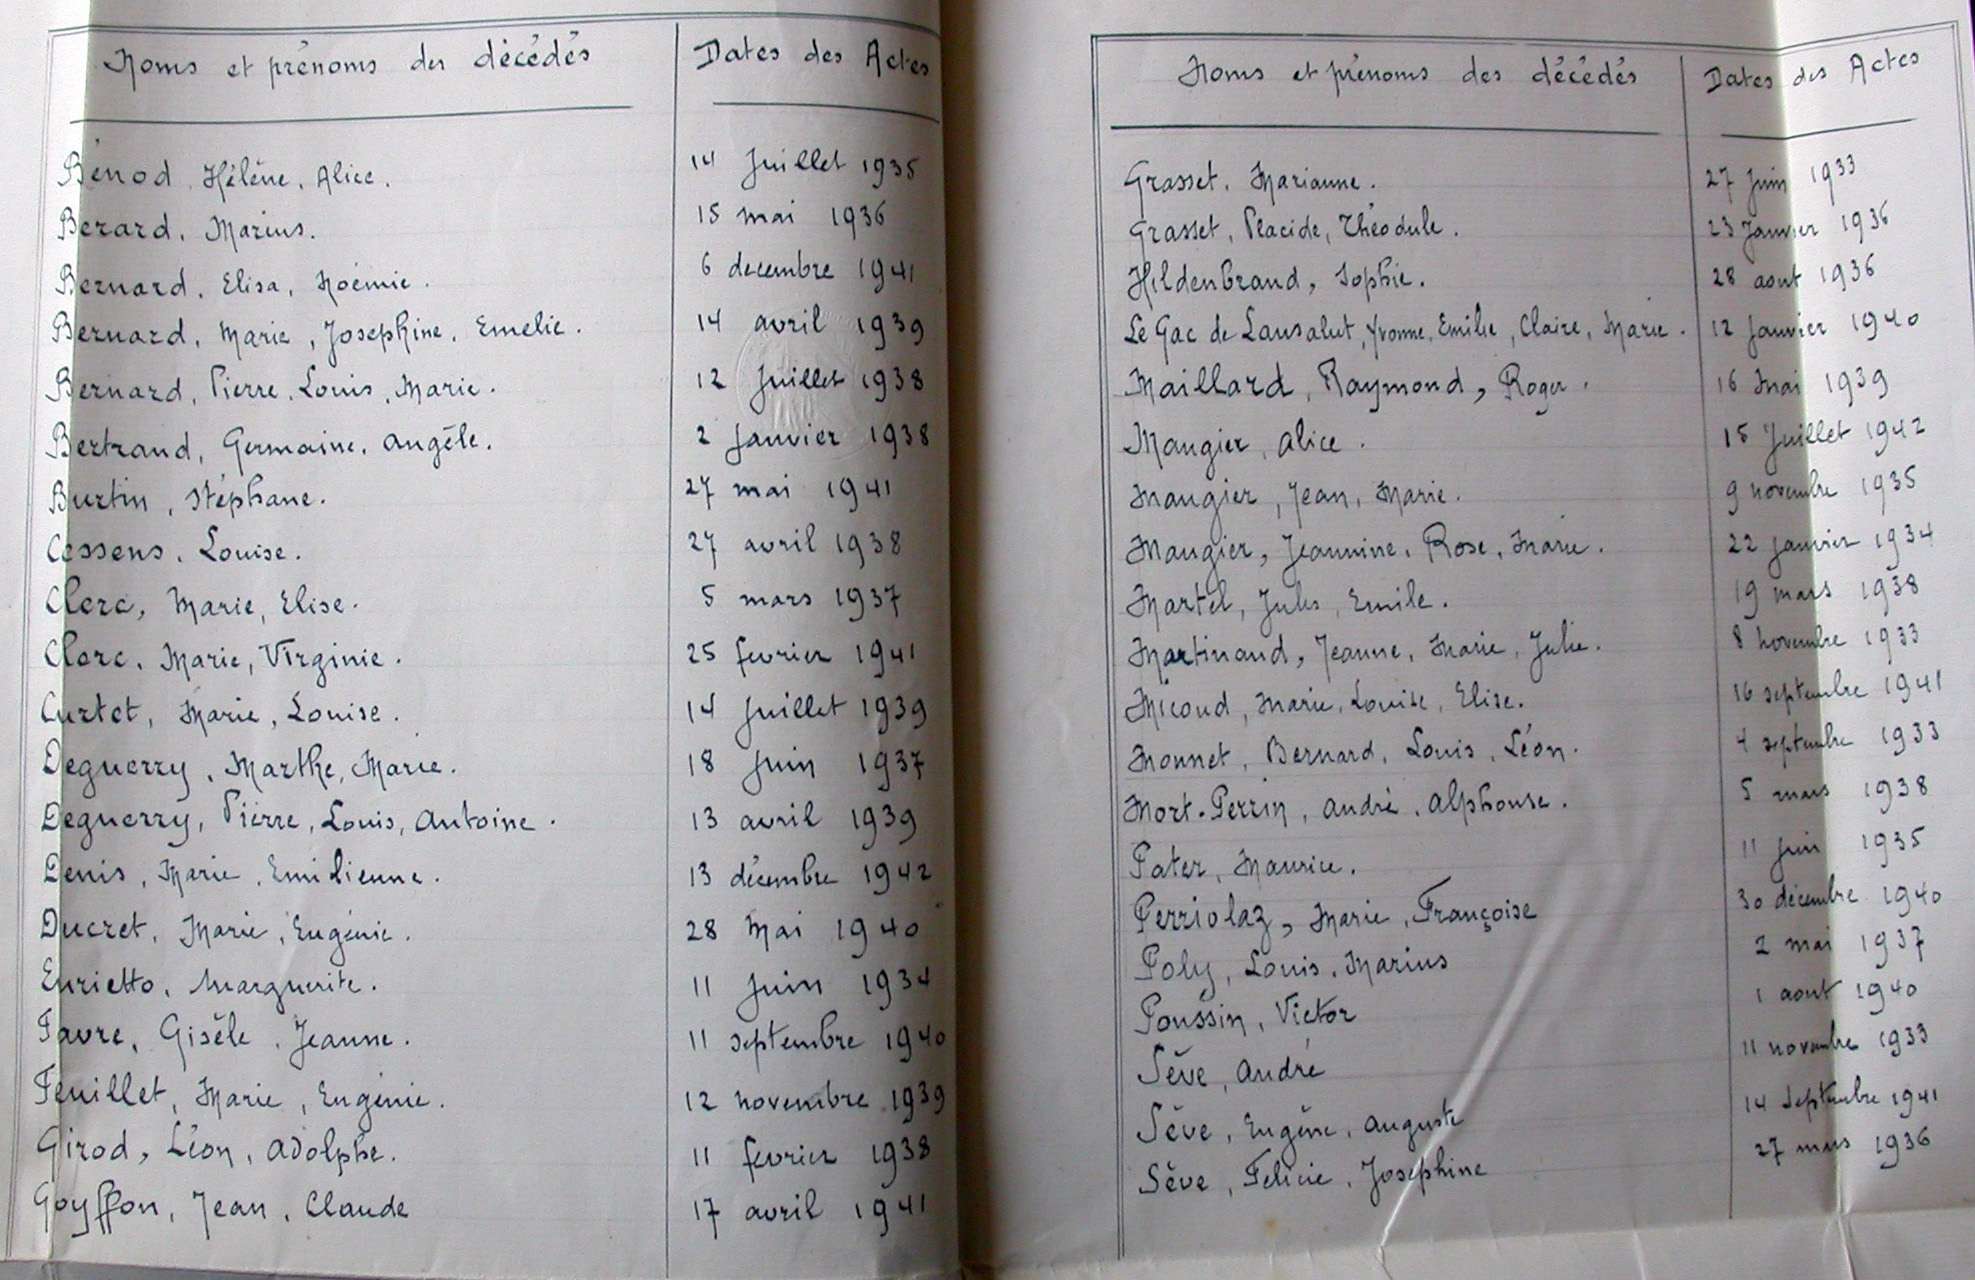 Noms et prénoms des décédés Dates des Actes
Bénod, Hélène, Alice. 14 Juillet 1935
Berard, Marius. 15 mai 1936
Bernard, Elisa, Noémie. 6 decembre 1941
Bernard, Marie, Josephine, Emelie. 14 avril 1939
Bernard, Pierre, Louis, Marie. 12 Juillet 1938
Bertrand, Germaine, Angèle. 2 Janvier 1938
Burtin, Stéphane. 27 mai 1941
Cessens, Louise. 27 avril 1938
Clerc, Marie, Elise. 5 mars 1937
Clerc, Marie, Virginie. 25 fevrier 1941
Curtet, Marie, Louise. 14 Juillet 1939
Deguerry, Marthe, Marie. 18 Juin 1937
Deguerry, Pierre, Louis, Antoine. 13 avril 1939
Denis, Marie, Emilienne. 13 décembre 1942
Ducret, Marie, Eugénie. 28 Mai 1940
Enrietto, Marguerite. 11 Juin 1934
Favre, Gisèle, Jeanne. 11 septembre 1940
Feuillet, Marie, Eugénie. 12 novembre 1939
Girod, Léon, Adolphe. 11 fevrier 1938
Goyffon, Jean, Claude 17 avril 1941
Noms et prénoms des décédés Dates des Actes
Grasset, Marianne. 27 Juin 1933
Grasset, Placide, Théodule. 23 Janvier 1936
Hildenbrand, Sophie. 28 aout 1936
Le Gac de Lansalut, Yvonne, Emilie, Claire, Marie. 12 Janvier 1940
Maillard, Raymond, Roger. 16 Mai 1939
Maugier, Alice. 15 Juillet 1942
Maugier, Jean, Marie. 9 novembre 1935
Maugier, Jeannine, Rose, Marie. 22 janvier 1934
Martel, Jules, Emile. 19 mars 1938
Martinand, Jeanne, Marie, Julie. 8 novembre 1933
Micoud, Marie, Louise, Elise. 16 septembre 1941
Monnet, Bernard, Louis, Léon. 4 septembre 1933
Mort-Perrin, André, Alphonse. 5 mars 1938
Pater, Maurice. 11 Juin 1935
Perriolaz, Marie, Françoise 30 décembre 1940
Poly, Louis, Marius 2 mai 1937
Poussin, Victor 1 aout 1940
Sève, André 11 novembre 1933
Sève, Eugène, Auguste 14 Septembre 1941
Sève, Felicie, Josephine 27 mars 1936